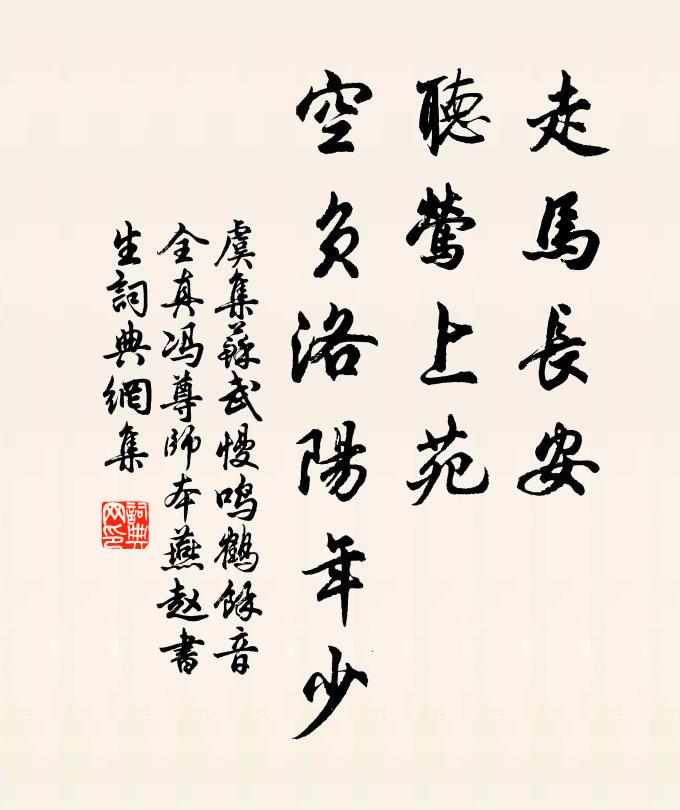 走馬長安
聽鶯上苑
空負洛陽年少
虞集蘇武慢鳴鶴餘音
全真冯尊師本燕赵書
生詞典網集
詞典
网印